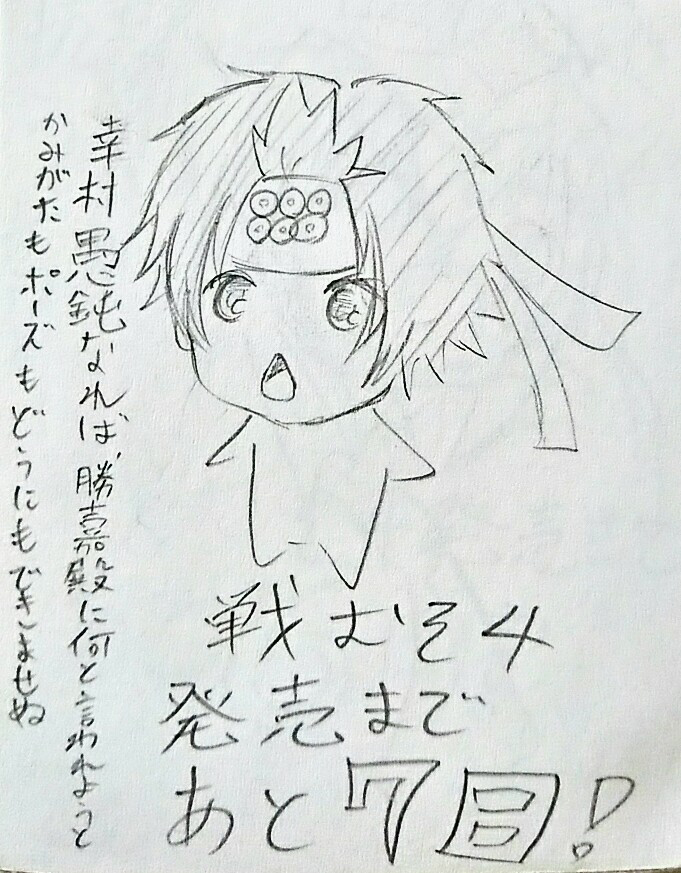 幸村愚鈍なれば、勝嘉殿に何と言われようと
かみがたもポーズもどうにもできませぬ
戦むそ4
発売まで
あと7日!